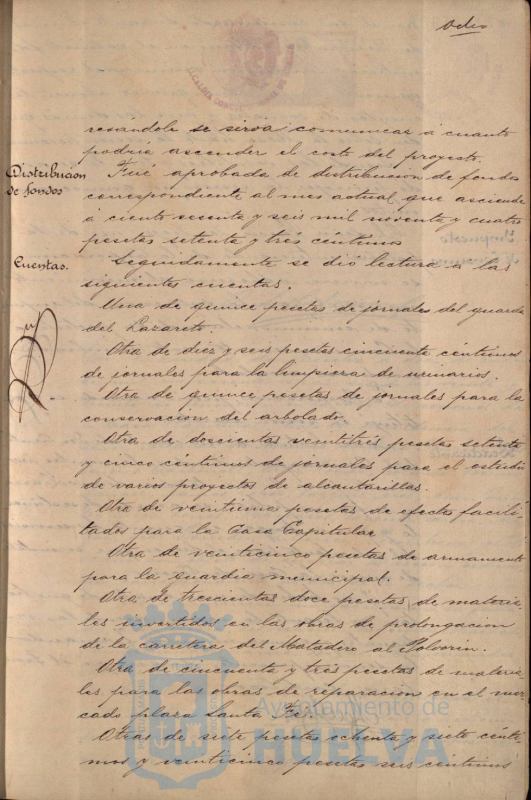 resándole se sirva comunicar á cuanto
podria ascender el costo del proyecto.
Distribucion
de fondos
Fué aprobada la distribucion de fondos
correspondiente al mes actual que asciende
á ciento sesenta y seis mil noventa y cuatro
pesetas setenta y tres céntimos
Cuentas.
Seguidamente se dió lectura á las
siguientes cuentas.
Una de quince pesetas de jornales del guarda
del Lazareto.
Otra de diez y seis pesetas cincuenta céntimos
de jornales para la limpieza de urinarios.
Otra de quince pesetas de jornales para la
conservacion del arbolado.
Otra de doscientas veintitres pesetas setenta
y cinco céntimos de jornales para el estudio
de varios proyectos de alcantarillas.
Otra de veintiuna pesetas de efectos facili
tados para la Casa Capitular
Otra de veinticinco pesetas de armamento
para la guardia municipal.
Otra de trescientas doce pesetas de materia
les invertidos en las obras de prolongacion
de la carretera del Matadero al Polvorin.
Otra de cincuenta y tres pesetas de materia
les para las obras de reparacion en el mer
cado plaza Santa Fé.
Otras de siete pesetas ochenta y siete cénti
mos y veinticinco pesetas seis céntimos
Ayuntamiento de
HUELVA